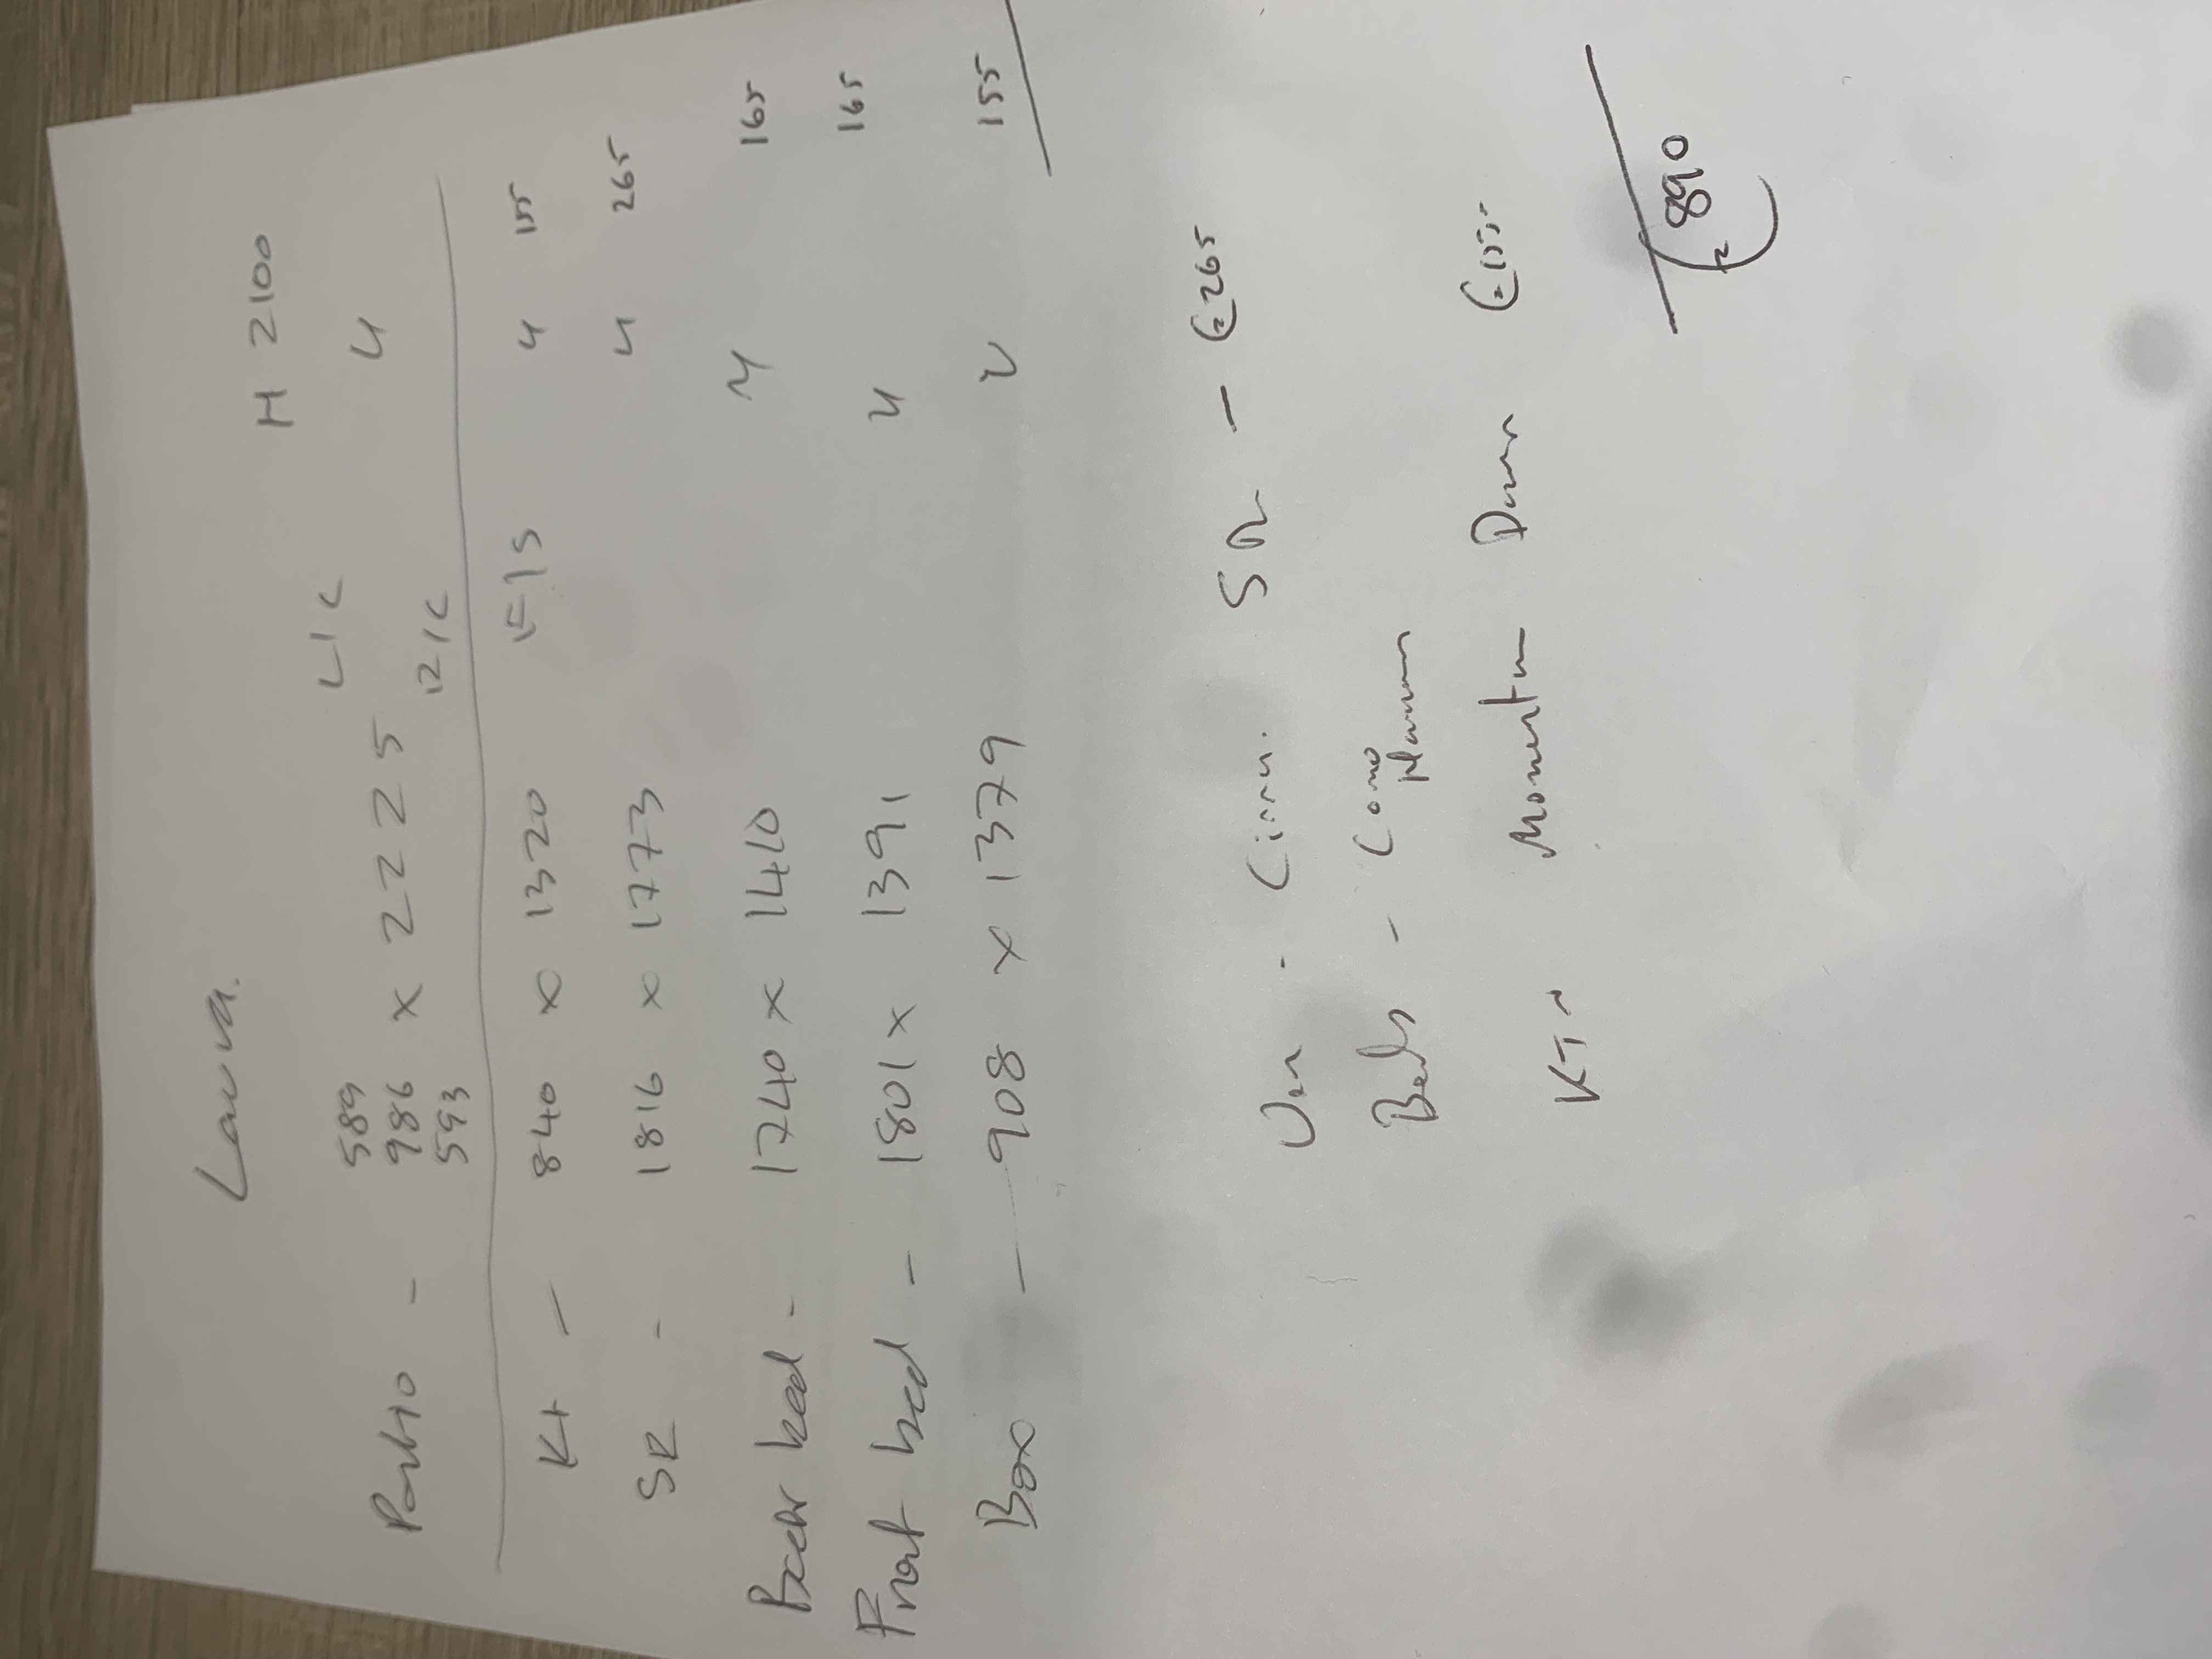 Laura.
H 2100
589 L/C
Patio - 986 x 2225 4
593 R/C
Kt - 840 x 1320 F/S 4 155
SR - 1816 x 1773 4 265
Back bed - 1740 x 1410 4 165
Front bed - 1801 x 1391 4 165
Box - 908 x 1379 155
SR - £265
Beds - Como
Momentum £155
£890